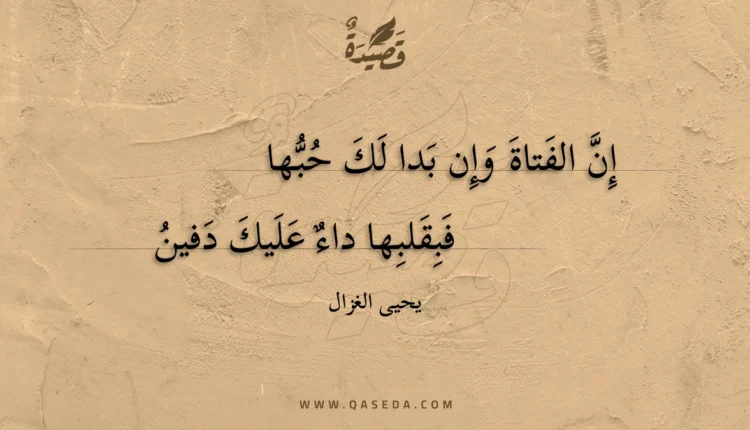 قَصِيْدَةٌ
إِنَّ الفَتاةَ وَإِن بَدا لَكَ حُبُّها
فَبِقَلبِها داءٌ عَلَيكَ دَفينُ
يحيى الغزال
WWW.QASEDA.COM